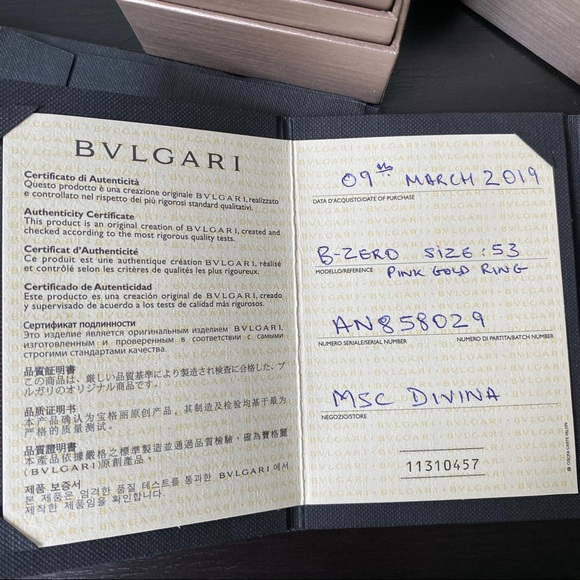 BVLGARI
Certificato di Autenticità
Questo prodotto è una creazione originale BVLGARI, realizzato
e controllato nel rispetto dei più rigorosi standard qualitativi.
Authenticity Certificate
This product is an original creation of BVLGARI, created and
checked according to the most rigorous quality tests.
Certificat d'Authenticité
Ce produit est une authentique création BVLGARI, réalisé
et contrôlé selon les critères de qualités les plus rigoureux.
Certificado de Autenticidad
Este producto es una creación original de BVLGARI, creado
y supervisado de acuerdo a los tests de calidad más rigurosos.
Сертификат подлинности
Это изделие является оригинальным изделием BVLGARI,
изготовленным и проверенным в соответствии с самыми
строгими стандартами качества.
品質証明書
この商品は、厳しい品質基準により製造され検査に合格した、ブ
ルガリのオリジナル商品です。
品质证明书
本产品确认为宝格丽原创产品，其制造及检验均基于最为
严格的质量测试。
品質證明書
本產品依據嚴格之標準製造並通過品質檢驗，確為寶格麗
(BVLGARI)原創產品。
제품 보증서
본 제품은 엄격한 품질 테스트를 통과한 BVLGARI 에서
제작한 제품임을 확인합니다.
09th MARCH 2019
DATA D'ACQUISTO/DATE OF PURCHASE
B-ZERO SIZE: 53
MODELLO/REFERENCE PINK GOLD RING
AN858029
NUMERO SERIALE/SERIAL NUMBER NUMERO DI PARTITA/BATCH NUMBER
MSC DIVINA
NEGOZIO/STORE
11310457